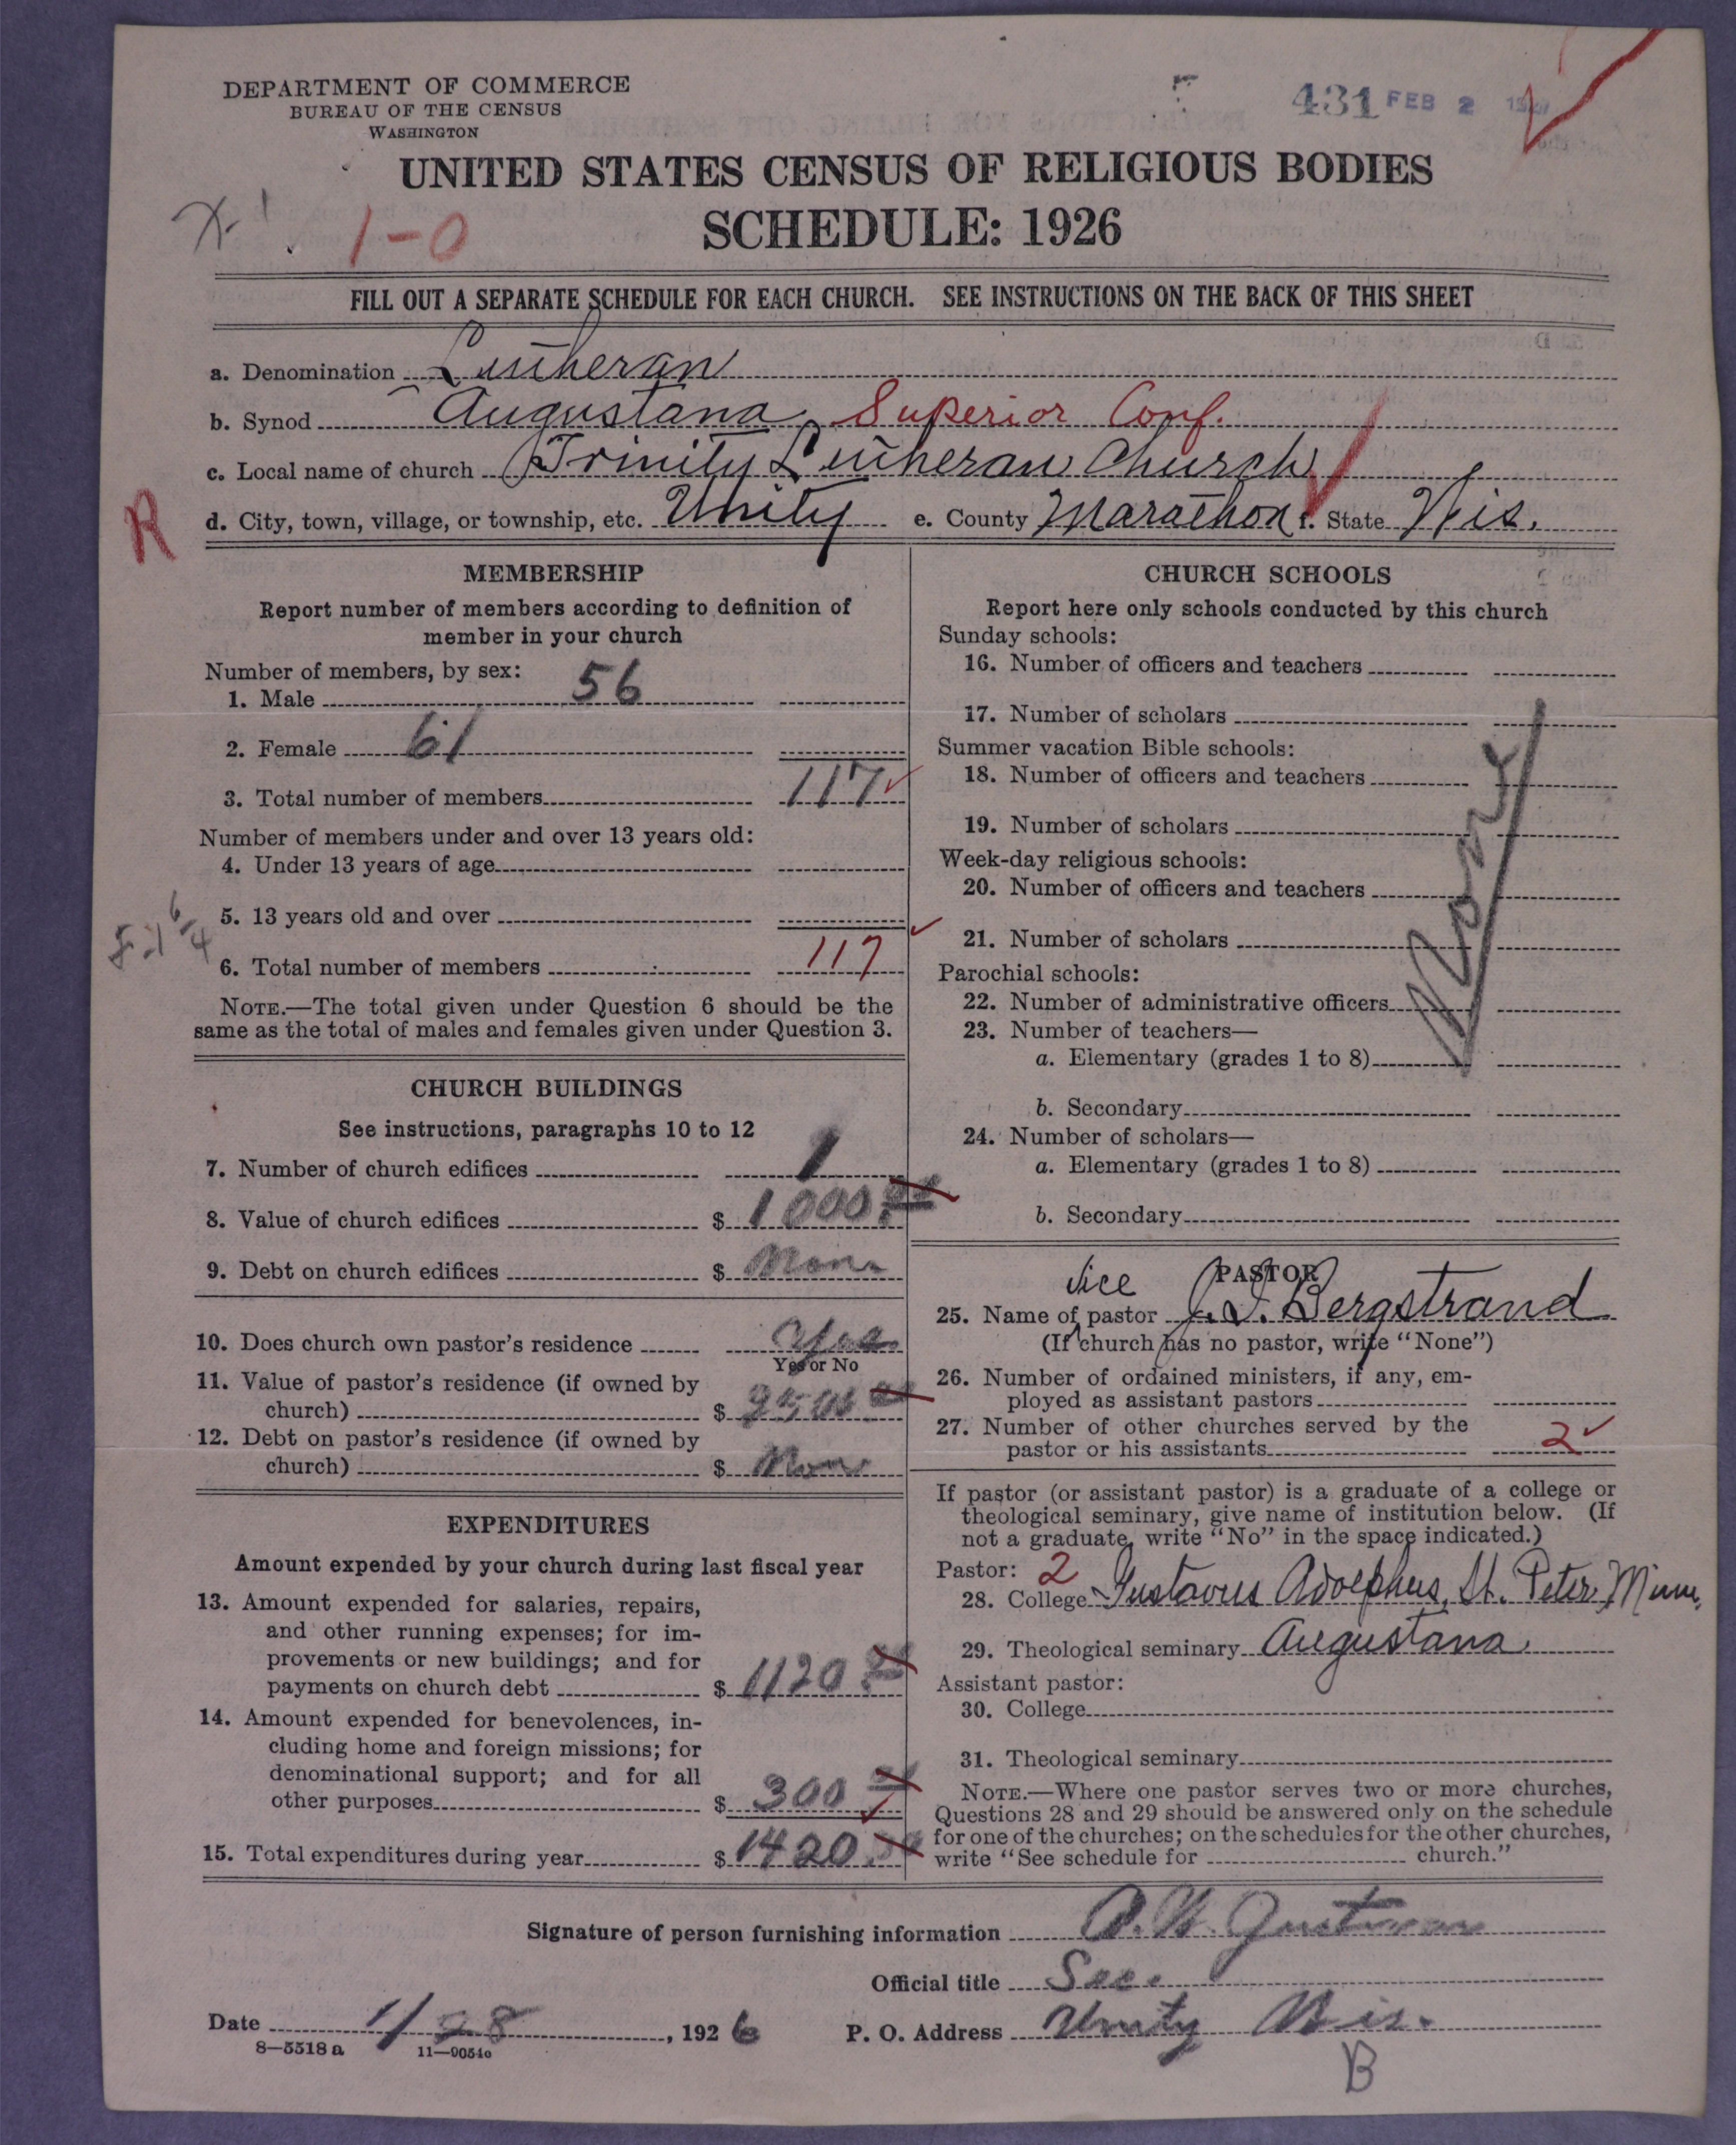 DEPARTMENT OF COMMERCE
BUREAU OF THE CENSUS
WASHINGTON
431 FEB 2
UNITED STATES CENSUS OF RELIGIOUS BODIES
SCHEDULE: 1926
1-0
FILL OUT A SEPARATE SCHEDULE FOR EACH CHURCH. SEE INSTRUCTIONS ON THE BACK OF THIS SHEET
a. Denomination Lutheran
b. Synod Augustana Superior Conf.
c. Local name of church Trinity Lutheran Church
R
d. City, town, village, or township, etc. Unity e. County Marathon f. State Wis.
MEMBERSHIP
Report number of members according to definition of
member in your church
Number of members, by sex:
1. Male 56
2. Female 61
3. Total number of members 117
Number of members under and over 13 years old:
4. Under 13 years of age
5. 13 years old and over
6. Total number of members 117
NOTE.—The total given under Question 6 should be the
same as the total of males and females given under Question 3.
CHURCH BUILDINGS
See instructions, paragraphs 10 to 12
7. Number of church edifices 1
8. Value of church edifices $ 1000
9. Debt on church edifices $ None
10. Does church own pastor's residence Yes
Yes or No
11. Value of pastor's residence (if owned by
church) $
12. Debt on pastor's residence (if owned by
church) $ None
EXPENDITURES
Amount expended by your church during last fiscal year
13. Amount expended for salaries, repairs,
and other running expenses; for im-
provements or new buildings; and for
payments on church debt $ 1120
14. Amount expended for benevolences, in-
cluding home and foreign missions; for
denominational support; and for all
other purposes $ 300
15. Total expenditures during year $ 1420
CHURCH SCHOOLS
Report here only schools conducted by this church
Sunday schools:
16. Number of officers and teachers
17. Number of scholars
Summer vacation Bible schools:
18. Number of officers and teachers
19. Number of scholars
Week-day religious schools:
20. Number of officers and teachers
21. Number of scholars
Parochial schools:
22. Number of administrative officers
23. Number of teachers—
a. Elementary (grades 1 to 8)
b. Secondary
24. Number of scholars—
a. Elementary (grades 1 to 8)
b. Secondary
None
PASTOR
vice
25. Name of pastor J. I. Bergstrand
(If church has no pastor, write "None")
26. Number of ordained ministers, if any, em-
ployed as assistant pastors
27. Number of other churches served by the
pastor or his assistants 2
If pastor (or assistant pastor) is a graduate of a college or
theological seminary, give name of institution below. (If
not a graduate, write "No" in the space indicated.)
Pastor: 2
28. College Gustavus Adolphus, St. Peter, Minn.
29. Theological seminary Augustana
Assistant pastor:
30. College
31. Theological seminary
NOTE.—Where one pastor serves two or more churches,
Questions 28 and 29 should be answered only on the schedule
for one of the churches; on the schedules for the other churches,
write "See schedule for church."
Signature of person furnishing information
Official title Sec.
Date 1/28, 1926 P. O. Address Unity Wis.
8—5518 a 11—9054o
B